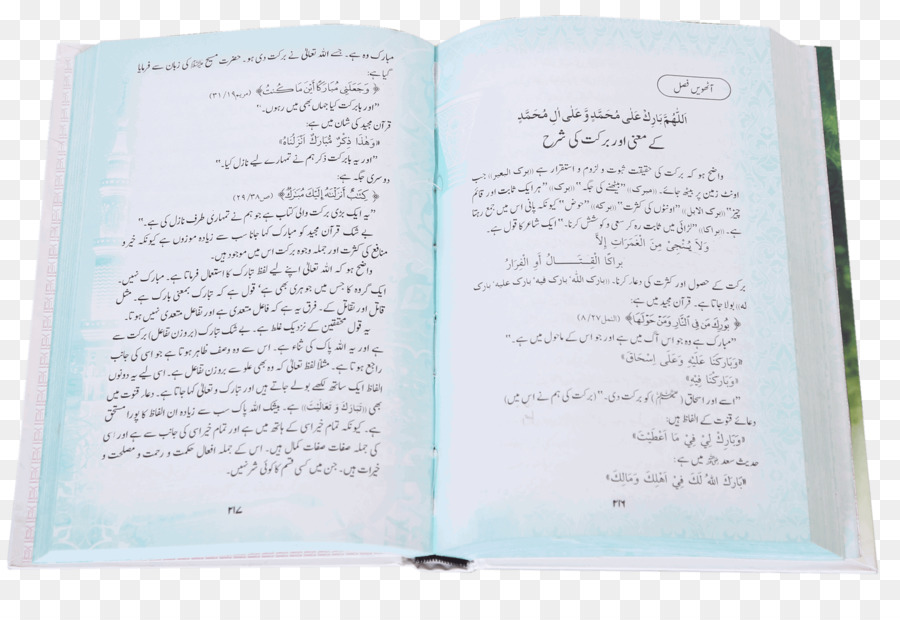 آٹھویں فصل
اَللّٰهُمَّ بَارِكْ عَلٰى مُحَمَّدٍ وَّ عَلٰى اٰلِ مُحَمَّدٍ
کے معنی اور برکت کی شرح
واضح ہو کہ برکت کی حقیقت ثبوت و لزوم و استقرار ہے ﴿برک البعیر﴾ جب
اونٹ زمین پر بیٹھ جائے۔ ﴿مبرک﴾ ”بیٹھنے کی جگہ“ ﴿برک﴾ ”ہر ایک ثابت اور قائم
چیز“ ﴿برک الابل﴾ ”اونٹوں کی کثرت“ ﴿برکہ﴾ ”حوض“ کیونکہ پانی اس میں جمع رہتا
ہے۔ ﴿براکا﴾ ”لڑائی میں ثابت رہ کر سعی و کوشش کرنا۔“ ایک شاعر کا قول ہے۔
وَلَا يُنْجِيْ مِنَ الْغَمَرَاتِ اِلَّا
بَرَاكَا الْقِتَــالِ أَوِ الْفِرَارُ
برکت کے حصول اور کثرت کی دعا کرنا۔ ﴿بارک اللہ‘ بارک فیہ‘ بارک علیہ‘ بارک
لہ﴾ بولا جاتا ہے۔ قرآن مجید میں ہے:
﴿بُوْرِكَ مَنْ فِي النَّارِ وَمَنْ حَوْلَهَا﴾ (النمل ۸/۲۷)
”مبارک ہے وہ جو اس آگ میں ہے اور جو اس کے ماحول میں ہے۔“
«وَبَارَكْنَا عَلَيْهِ وَعَلٰى اِسْحَاقَ»
«وَبَارَكْنَا فِيْهِ»
”اسے اور اسحاق کو برکت دی۔“ (برکت کی ہم نے اس میں)
دعائے قنوت کے الفاظ ہیں:
«وَبَارِكْ لِيْ فِيْ مَا اَعْطَيْتَ»
حدیث سعد میں ہے:
«بَارَكَ اللهُ لَكَ فِيْ اَهْلِكَ وَمَالِكَ»
۲۱۶
مبارک وہ ہے۔ جسے اللہ تعالیٰ نے برکت دی ہو۔ حضرت مسیح کی زبان سے فرمایا
گیا ہے:
﴿وَجَعَلَنِيْ مُبَارَكًا أَيْنَ مَا كُنْتُ﴾ (مریم ۳۱/۱۹)
”اور بابرکت کیا جہاں بھی میں رہوں۔“
قرآن مجید کی شان میں ہے:
«وَهٰذَا ذِكْرٌ مُّبَارَكٌ اَنْزَلْنَاهُ»
”اور یہ بابرکت ذکر ہم نے تمہارے لیے نازل کیا۔“
دوسری جگہ ہے:
﴿كِتَابٌ أَنْزَلْنٰهُ إِلَيْكَ مُبٰرَكٌ﴾ (ص ۲۹/۳۸)
”یہ ایک بڑی برکت والی کتاب ہے جو ہم نے تمہاری طرف نازل کی ہے۔“
بے شک قرآن مجید کو مبارک کہا جانا سب سے زیادہ موزوں ہے کیونکہ خیر و
منافع کی کثرت اور جملہ وجوہ برکت اس میں موجود ہیں۔
واضح ہو کہ اللہ تعالیٰ اپنے لیے لفظ تبارک کا استعمال فرماتا ہے۔ مبارک نہیں۔
ایک گروہ کا جس میں جوہری بھی ہے‘ قول ہے کہ تبارک بمعنی بارک ہے۔ مثل
قاتل اور تقاتل کے۔ فرق یہ ہے کہ فاعل متعدی ہے اور تفاعل متعدی نہیں ہوتا۔
یہ قول محققین کے نزدیک غلط ہے۔ بے شک تبارک (بروزن تفاعل) برکت سے
ہے اور یہ اللہ پاک کی ثناء ہے۔ اس سے وہ وصف ظاہر ہوتا ہے جو اسی کی جانب
راجع ہوتا ہے۔ مثلاً لفظ تعالیٰ کہ وہ بھی علو سے بروزن تفاعل ہے۔ اسی لیے یہ دونوں
الفاظ ایک ساتھ لکھے بولے جاتے ہیں اور تبارک و تعالیٰ کہا جاتا ہے۔ دعاء قنوت میں
بھی «تَبَارَكْتَ وَ تَعَالَيْتَ» ہے۔ بیشک اللہ پاک سب سے زیادہ ان الفاظ کا پورا مستحق
ہے۔ کیونکہ تمام خیر اسی کے ہاتھ میں ہے اور تمام خیر اسی کی جانب سے ہے اور اسی
کی جملہ صفات صفات کمال ہیں۔ اس کے جملہ افعال حکمت و رحمت و مصلحت و
خیرات ہیں۔ جن میں کسی قسم کا کوئی شر نہیں۔
۲۱۷